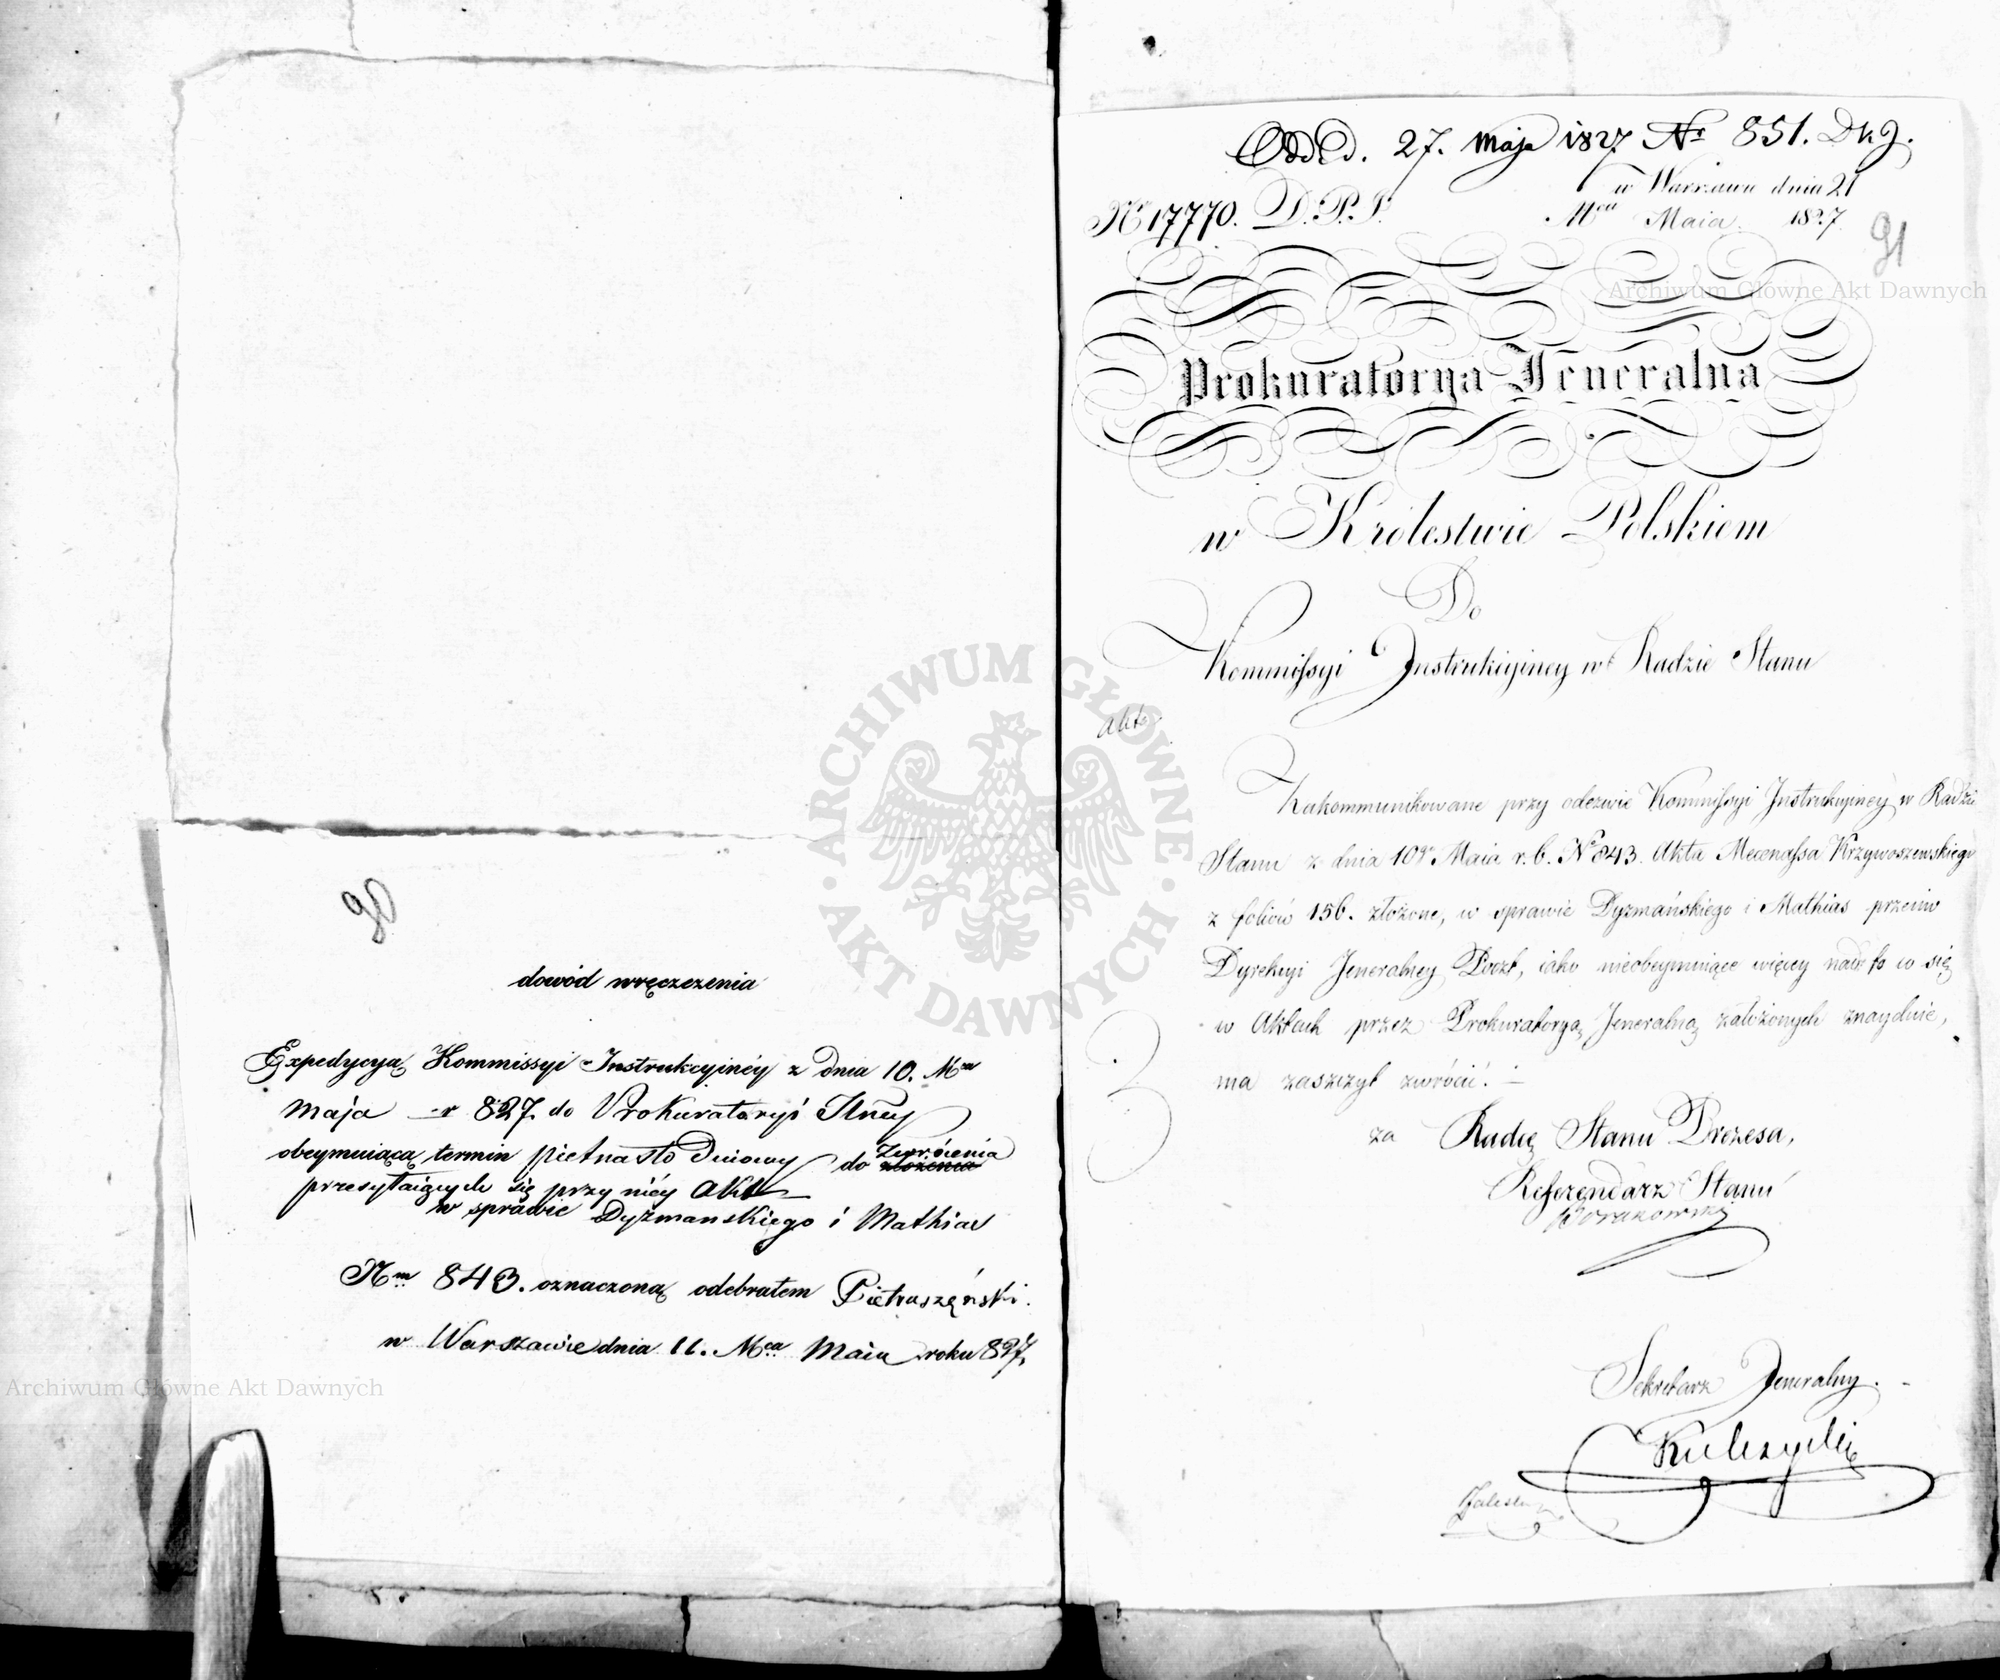 90
dowód wręczenia
Expedycyą Kommissyi Instrukcyinéy z dnia 10. Mca
maja r 827. do Prokuratoryi
obeymuiącą termin pietnasto Dniowy do złożenia Zwrócenia
przesyłaiących się przy niéy Akt
w sprawie Dyzmanskiego i Mathias
Nrm 843. oznaczoną odebrałem
w Warszawie dnia 11. Mca Maia roku 827.
Odd. 27. maja 1827 Nr 851.
w Warszawie dnia 21
No 17770. D.P.J. Mca Maia 1827
91
Prokuratorya Jeneralna
w Królestwie Polskiem
Do
Kommissyi Instrukcyiney w Radzie Stanu
akta
Zakommunikowane przy odezwie Kommissyi Instrukcyiney w Radzie
Stanu z dnia 10go Maia r. b. No 843. Akta Mecenassa Krzywoszewskiego
z foliów 156. złożone, w sprawie Dyzmańskiego i Mathias przeciw
Dyrekcyi Jeneralney Poczt, iako nieobeymuiące więcey nad to co się
w Aktach przez Prokuratoryą Jeneralną założonych znayduie,
ma zaszczyt zwrócić.
za Radcę Stanu Prezesa,
Referendarz Stanu
Sekretarz Jeneralny.
Kulczycki
Archiwum Główne Akt Dawnych
Archiwum Główne Akt Dawnych
ARCHIWUM GŁÓWNE AKT DAWNYCH